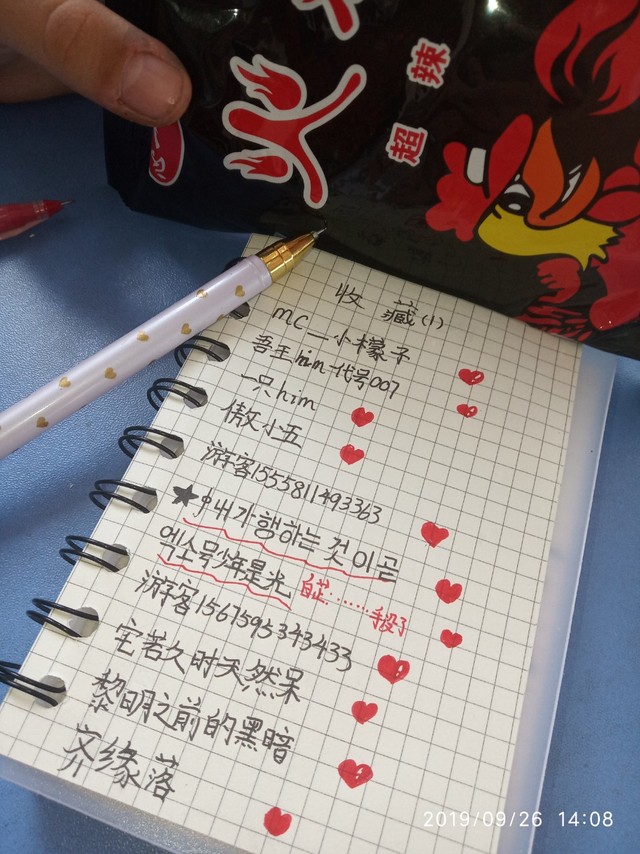 火
超辣
收藏(1)
MC一小檬子
吾王him代号007
一只him
傲小五
游客1555811493363
★우내가행하는것이곧
엑소号少年是光 白芷……手段了
游客1567595343433
宅若久时天然呆
黎明之前的黑暗
齐缘落
2019/09/26 14:08